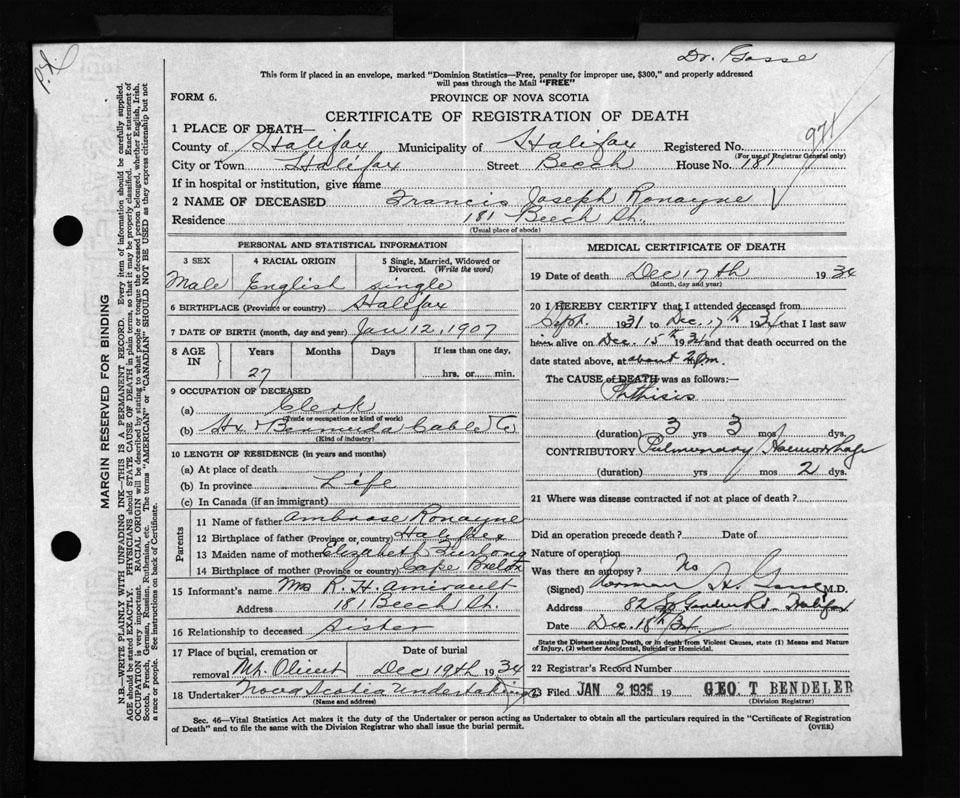 Dr. Gosse
This form if placed in an envelope, marked "Dominion Statistics—Free, penalty for improper use, $300," and properly addressed
will pass through the Mail "FREE"
FORM 6.
PROVINCE OF NOVA SCOTIA
CERTIFICATE OF REGISTRATION OF DEATH
971
1 PLACE OF DEATH—
County of Halifax Municipality of Halifax Registered No.
(For use of Registrar General only)
City or Town Halifax Street Beech House No. 181
If in hospital or institution, give name
2 NAME OF DECEASED Francis Joseph Ronayne
Residence 181 Beech St.
(Usual place of abode)
PERSONAL AND STATISTICAL INFORMATION
3 SEX 4 RACIAL ORIGIN 5 Single, Married, Widowed or
Divorced. (Write the word)
Male English single
6 BIRTHPLACE (Province or country) Halifax
7 DATE OF BIRTH (month, day and year) Jan 12, 1907
8 AGE IN Years Months Days If less than one day,
27 hrs. or min.
9 OCCUPATION OF DECEASED
(a) Clerk
(Trade or occupation or kind of work)
(b) Hx Bermuda Cable Co
(Kind of industry)
10 LENGTH OF RESIDENCE (in years and months)
(a) At place of death
(b) In province Life
(c) In Canada (if an immigrant)
Parents
11 Name of father Ambrose Ronayne
12 Birthplace of father (Province or country) Halifax
13 Maiden name of mother Elizabeth Furlong
14 Birthplace of mother (Province or country) Cape Breton
15 Informant's name Mrs R. H. Amirault
Address 181 Beech St.
16 Relationship to deceased Sister
17 Place of burial, cremation or removal Date of burial
Mt. Olivet Dec 19th 1934
18 Undertaker Nova Scotia Undertaking Co
(Name and address)
MEDICAL CERTIFICATE OF DEATH
19 Date of death Dec 17th 1934
(Month, day and year)
20 I HEREBY CERTIFY that I attended deceased from
Sept. 1931 to Dec 17th 1934 that I last saw
him alive on Dec. 15th 1934 and that death occurred on the
date stated above, at about 2 pm.
The CAUSE of DEATH was as follows:—
Phthisis
(duration) 3 yrs 3 mos. dys.
CONTRIBUTORY Pulmonary Haemorrhage
(duration) yrs mos 2 dys.
21 Where was disease contracted if not at place of death?
Did an operation precede death? Date of
Nature of operation
Was there an autopsy? No
(Signed) Norman H. Gosse M.D.
Address 82 Halifax
Date Dec. 18th 34
State the Disease causing Death, or in death from Violent Causes, state (1) Means and Nature
of Injury, (2) whether Accidental, Suicidal or Homicidal.
22 Registrar's Record Number
23 Filed JAN 2 1935 19 GEO T BENDELER
(Division Registrar)
Sec. 46—Vital Statistics Act makes it the duty of the Undertaker or person acting as Undertaker to obtain all the particulars required in the "Certificate of Registration
of Death" and to file the same with the Division Registrar who shall issue the burial permit.
(OVER)
MARGIN RESERVED FOR BINDING
N.B.—WRITE PLAINLY WITH UNFADING INK—THIS IS A PERMANENT RECORD. Every item of information should be carefully supplied.
AGE should be stated EXACTLY. PHYSICIANS should STATE CAUSE OF DEATH in plain terms, so that it may be properly classified. Exact statement of
OCCUPATION is very important. RACIAL ORIGIN will be described by stating to what people or tongue the deceased person belonged, whether English, Irish,
Scotch, French, German, Russian, Ruthenian, etc. The terms "AMERICAN" or "CANADIAN" SHOULD NOT BE USED as they express citizenship but not
a race or people. See instructions on back of Certificate.